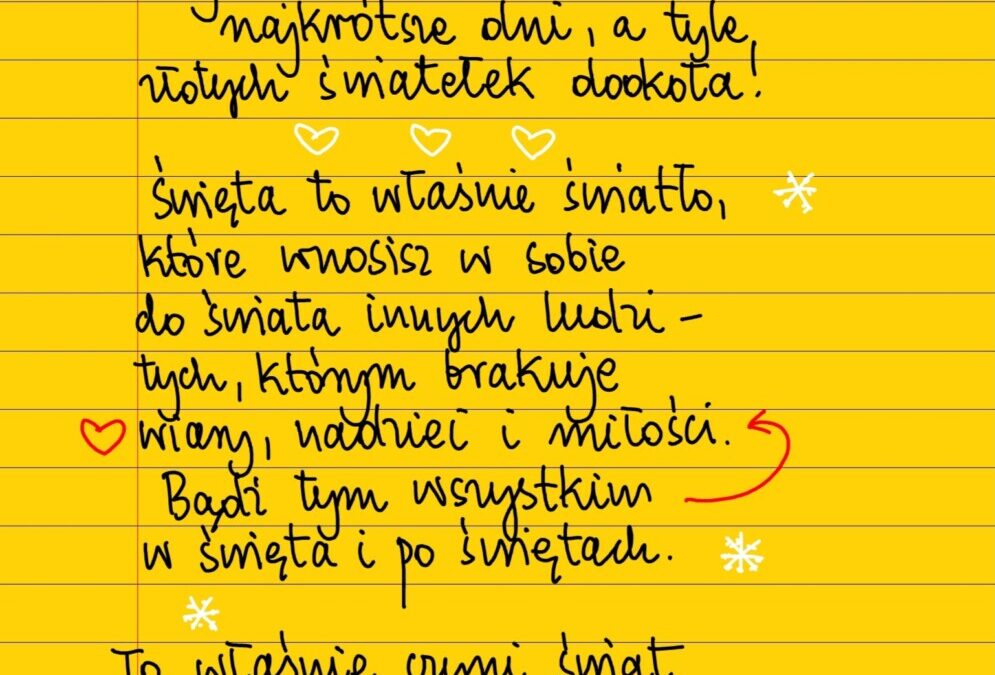 najkrótsze dni, a tyle
złotych światełek dookoła!
Święta to właśnie światło,
które wnosisz w sobie
do świata innych ludzi –
tych, którym brakuje
wiary, nadziei i miłości.
Bądź tym wszystkim
w święta i po świętach.
To właśnie czyni świat